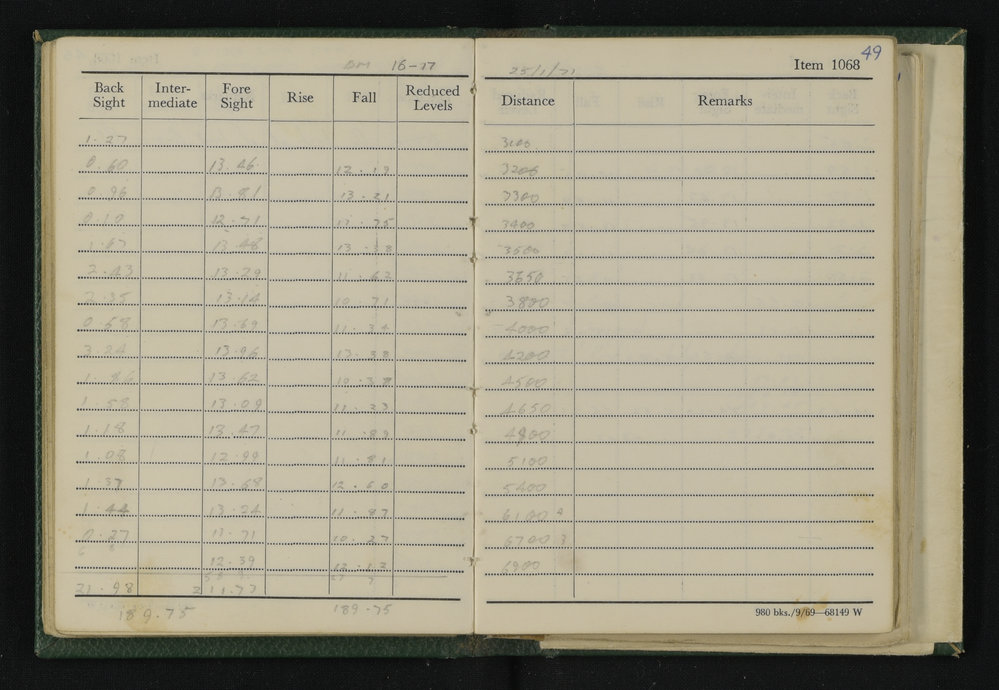 BM 16-77
Back Sight Inter-mediate Fore Sight Rise Fall Reduced Levels
1.27
0.60 13.46 12.19
0.96 13.81 13.21
0.10 12.71 11.75
1.67 13.48 13.38
2.43 13.29 11.62
2.35 13.14 10.71
0.58 13.69 11.34
3.24 13.96 13.38
1.86 13.62 10.38
1.58 13.09 11.23
1.18 13.47 11.89
1.08 12.99 11.81
1.37 13.68 12.60
1.44 13.24 11.87
0.27 11.71 10.27
12.39 12.12
21.98 211.73
189.75 189.75
49
25/1/71 Item 1068
Distance Remarks
3100
3200
3300
3400
3500
3650
3800
4000
4200
4500
4650
4900
5100
5400
6100
6700
6900
980 bks./9/69—68149 W